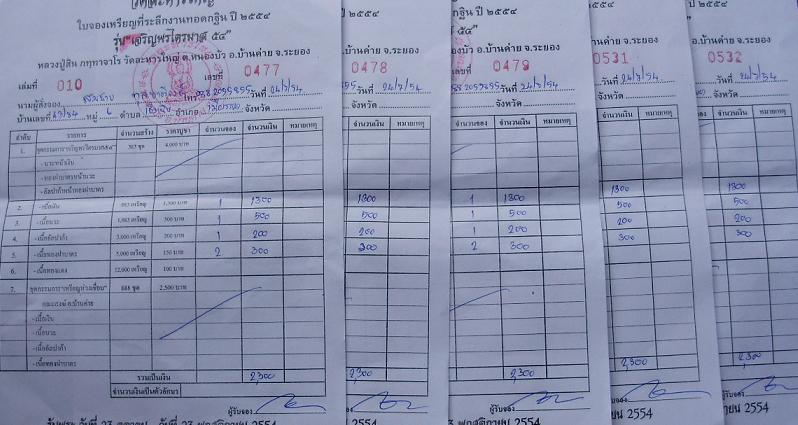 ใบจองเหรียญที่ระลึกงานทอดกฐิน ปี ๒๕๕๔
รุ่น "เจริญพรไตรมาส ๕๔"
หลวงปู่สิน ภทฺทาจาโร วัดละหารใหญ่ ต.หนองบัว อ.บ้านค่าย จ.ระยอง
เล่มที่ 010 เลขที่ 0477
นามผู้สั่งจอง โทร 038 2055855 วันที่ 24/7/54
บ้านเลขที่ หมู่ 6 ตำบล อำเภอ จังหวัด
ลำดับ รายการ จำนวนสร้าง ราคาบูชา จำนวนจอง จำนวนเงิน หมายเหตุ
1. ชุดกรรมการ 4,000 บาท
2. -เนื้อเงิน 1,300 บาท 1 1300
3. -เนื้อนวะ 500 บาท 1 500
4. -เนื้ออัลปาก้า 3,000 เหรียญ 200 บาท 1 200
5. -เนื้อทองฝาบาตร 5,000 เหรียญ 150 บาท 2 300
6. -เนื้อทองแดง 12,000 เหรียญ 100 บาท
7. ชุดกรรมการ 888 ชุด 2,500 บาท
-เนื้อเงิน
-เนื้อนวะ
-เนื้ออัลปาก้า
-เนื้อทองฝาบาตร
รวมเป็นเงิน 2,300
จำนวนเงินเป็นตัวอักษร
ผู้รับจอง
ปี ๒๕๕๔
อ.บ้านค่าย จ.ระยอง
0478
วันที่ 24/7/54
จังหวัด
จำนวนเงิน หมายเหตุ
1300
500
200
300
2,300
ผู้รับจอง
2554
ปี ๒๕๕๔
๕๔"
ต.หนองบัว อ.บ้านค่าย จ.ระยอง
เลขที่ 0479
2055855 วันที่ 24/7/54
จังหวัด
จำนวนเงิน หมายเหตุ
1 1300
1 500
1 200
2 300
2,300
ผู้รับจอง
พฤศจิกายน 2554
๒๕๕๔
จ.ระยอง
0531
24/7/54
จังหวัด
จำนวนเงิน หมายเหตุ
1300
500
200
300
2,300
2554
ปี ๒๕๕๔
อ.บ้านค่าย จ.ระยอง
0532
วันที่ 24/7/54
จังหวัด
จำนวนเงิน หมายเหตุ
1300
500
200
300
2,300
ผู้รับจอง
2554